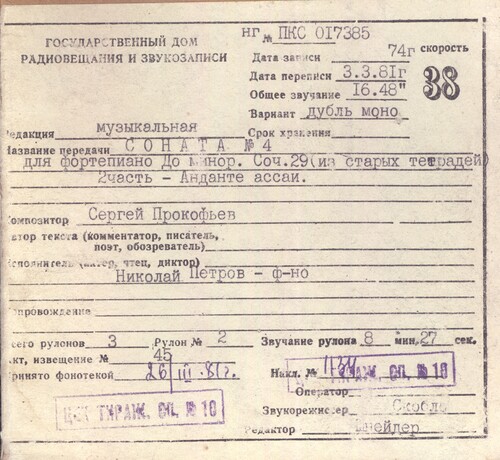 НГ № ПКС 017385
ГОСУДАРСТВЕННЫЙ ДОМ
РАДИОВЕЩАНИЯ И ЗВУКОЗАПИСИ
Дата записи 74г скорость
Дата переписи 3.3.81г
Общее звучание 16.48" 38
Вариант дубль моно
Редакция музыкальная Срок хранения
Название передачи СОНАТА № 4
для фортепиано До минор. Соч.29(из старых тетрадей)
2часть - Анданте ассаи.
Композитор Сергей Прокофьев
Автор текста (комментатор, писатель,
поэт, обозреватель)
Исполнитель (актер, чтец, диктор)
Николай Петров - ф-но
Сопровождение
Всего рулонов 3 Рулон № 2 Звучание рулона 8 мин. 27 сек.
Акт, извещение № 45
Принято фонотекой 26 III.81г. Накл. №
ТИРАЖ. СП. № 10
Оператор
ЦЕХ ТИРАЖ. СП. № 10
Звукорежиссер Скобло
Редактор Шнейдер